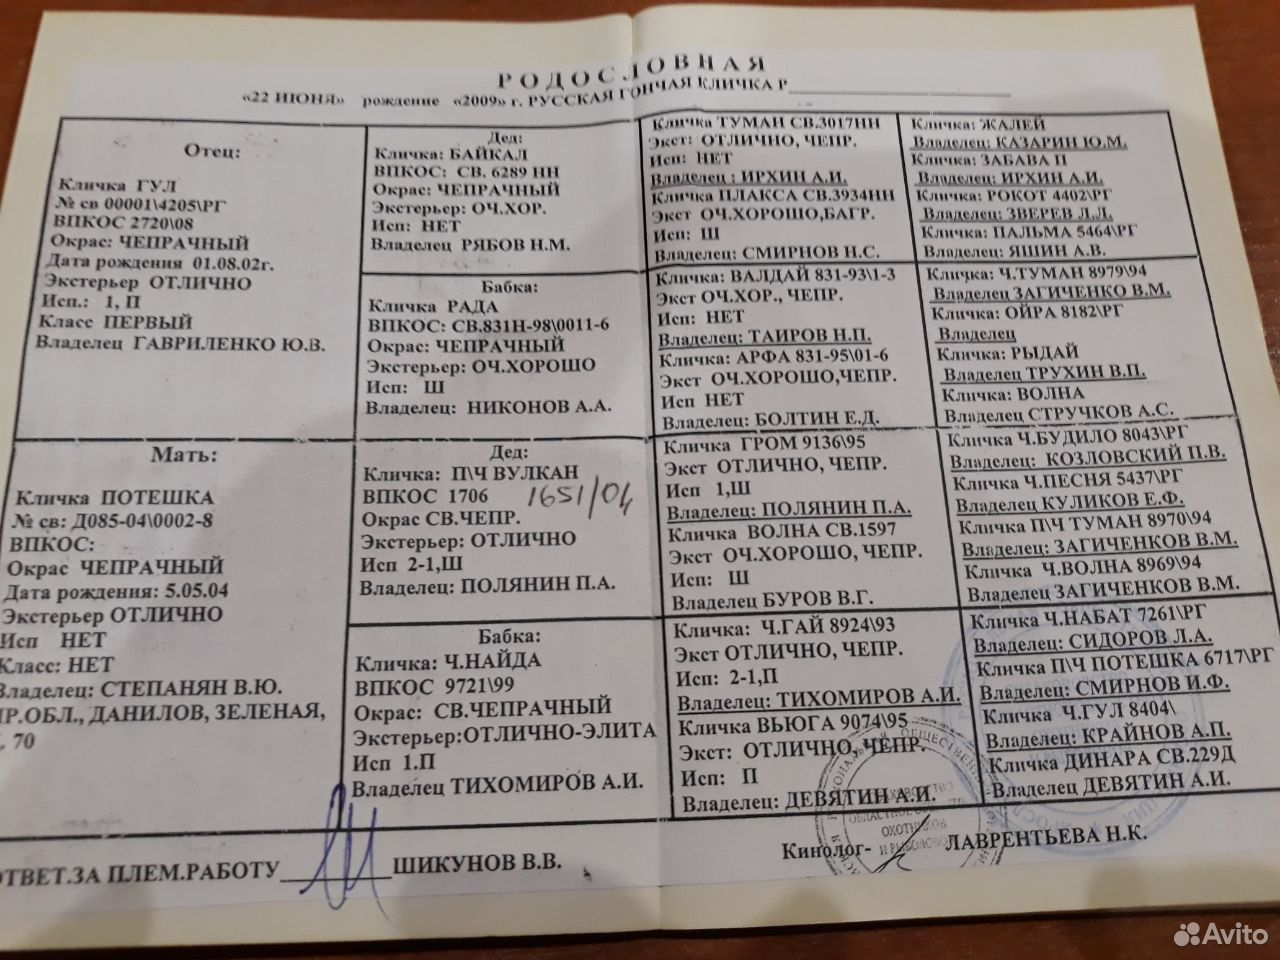 РОДОСЛОВНАЯ
«22 ИЮНЯ» рождение «2009» г. РУССКАЯ ГОНЧАЯ КЛИЧКА Р
Отец:
Кличка ГУЛ
№ св 00001\4205\РГ
ВПКОС 2720\08
Окрас: ЧЕПРАЧНЫЙ
Дата рождения 01.08.02г.
Экстерьер ОТЛИЧНО
Исп.: 1, П
Класс ПЕРВЫЙ
Владелец ГАВРИЛЕНКО Ю.В.
Мать:
Кличка ПОТЕШКА
№ св: Д085-04\0002-8
ВПКОС:
Окрас ЧЕПРАЧНЫЙ
Дата рождения: 5.05.04
Экстерьер ОТЛИЧНО
Исп НЕТ
Класс: НЕТ
Владелец: СТЕПАНЯН В.Ю.
ЯР.ОБЛ., ДАНИЛОВ, ЗЕЛЕНАЯ,
70
Дед:
Кличка: БАЙКАЛ
ВПКОС: СВ. 6289 НН
Окрас: ЧЕПРАЧНЫЙ
Экстерьер: ОЧ.ХОР.
Исп: НЕТ
Владелец РЯБОВ Н.М.
Бабка:
Кличка РАДА
ВПКОС: СВ.831Н-98\0011-6
Окрас: ЧЕПРАЧНЫЙ
Экстерьер: ОЧ.ХОРОШО
Исп: Ш
Владелец: НИКОНОВ А.А.
Дед:
Кличка: П\Ч ВУЛКАН
ВПКОС 1706 1651/04
Окрас СВ.ЧЕПР.
Экстерьер: ОТЛИЧНО
Исп 2-1,Ш
Владелец: ПОЛЯНИН П.А.
Бабка:
Кличка: Ч.НАЙДА
ВПКОС 9721\99
Окрас: СВ.ЧЕПРАЧНЫЙ
Экстерьер:ОТЛИЧНО-ЭЛИТА
Исп 1.П
Владелец ТИХОМИРОВ А.И.
Кличка ТУМАН СВ.3017НН
Экст: ОТЛИЧНО, ЧЕПР.
Исп: НЕТ
Владелец : ИРХИН А.И.
Кличка ПЛАКСА СВ.3934НН
Экст ОЧ.ХОРОШО,БАГР.
Исп: Ш
Владелец: СМИРНОВ Н.С.
Кличка: ВАЛДАЙ 831-93\1-3
Экст ОЧ.ХОР., ЧЕПР.
Исп: НЕТ
Владелец: ТАИРОВ Н.П.
Кличка: АРФА 831-95\01-6
Экст ОЧ.ХОРОШО,ЧЕПР.
Исп НЕТ
Владелец: БОЛТИН Е.Д.
Кличка ГРОМ 9136\95
Экст ОТЛИЧНО, ЧЕПР.
Исп 1,Ш
Владелец: ПОЛЯНИН П.А.
Кличка ВОЛНА СВ.1597
Экст ОЧ.ХОРОШО, ЧЕПР.
Исп: Ш
Владелец БУРОВ В.Г.
Кличка: Ч.ГАЙ 8924\93
Экст ОТЛИЧНО, ЧЕПР.
Исп: 2-1,П
Владелец: ТИХОМИРОВ А.И.
Кличка ВЬЮГА 9074\95
Экст: ОТЛИЧНО, ЧЕПР.
Исп: П
Владелец: ДЕВЯТИН А.И.
Кличка: ЖАЛЕЙ
Владелец: КАЗАРИН Ю.М.
Кличка: ЗАБАВА П
Владелец: ИРХИН А.И.
Кличка: РОКОТ 4402\РГ
Владелец: ЗВЕРЕВ Л.Л.
Кличка: ПАЛЬМА 5464\РГ
Владелец: ЯШИН А.В.
Кличка: Ч.ТУМАН 8979\94
Владелец ЗАГИЧЕНКО В.М.
Кличка: ОЙРА 8182\РГ
Владелец
Кличка: РЫДАЙ
Владелец ТРУХИН В.П.
Кличка: ВОЛНА
Владелец СТРУЧКОВ А.С.
Кличка Ч.БУДИЛО 8043\РГ
Владелец: КОЗЛОВСКИЙ П.В.
Кличка: Ч.ПЕСНЯ 5437\РГ
Владелец КУЛИКОВ Е.Ф.
Кличка П\Ч ТУМАН 8970\94
Владелец: ЗАГИЧЕНКОВ В.М.
Кличка Ч.ВОЛНА 8969\94
Владелец ЗАГИЧЕНКОВ В.М.
Кличка Ч.НАБАТ 7261\РГ
Владелец: СИДОРОВ Л.А.
Кличка П\Ч ПОТЕШКА 6717\РГ
Владелец: СМИРНОВ И.Ф.
Кличка Ч.ГУЛ 8404\
Владелец: КРАЙНОВ А.П.
Кличка ДИНАРА СВ.229Д
Владелец ДЕВЯТИН А.И.
ОТВЕТ.ЗА ПЛЕМ.РАБОТУ ШИКУНОВ В.В.
Кинолог- ЛАВРЕНТЬЕВА Н.К.
ОХОТНИКОВ
И РЫБОЛОВОВ
Avito